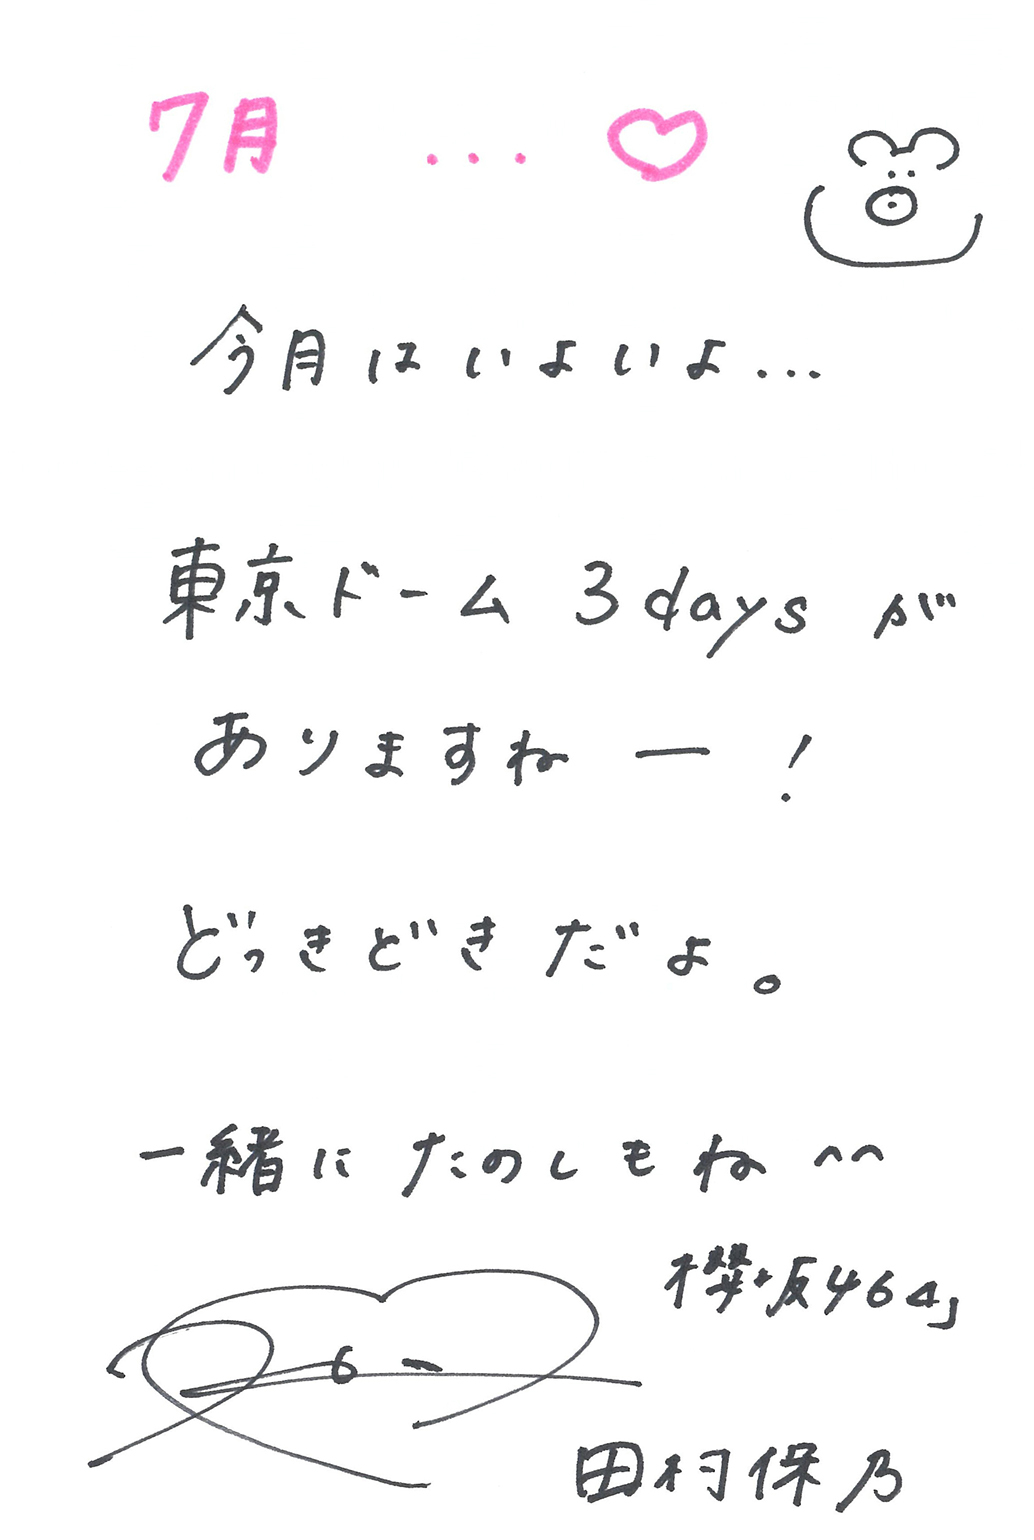 7月 ... ♡
今月はいよいよ...
東京ドーム 3daysが
ありますねー!
どっきどきだよ。
一緒にたのしもね ^^
櫻坂46
田村保乃